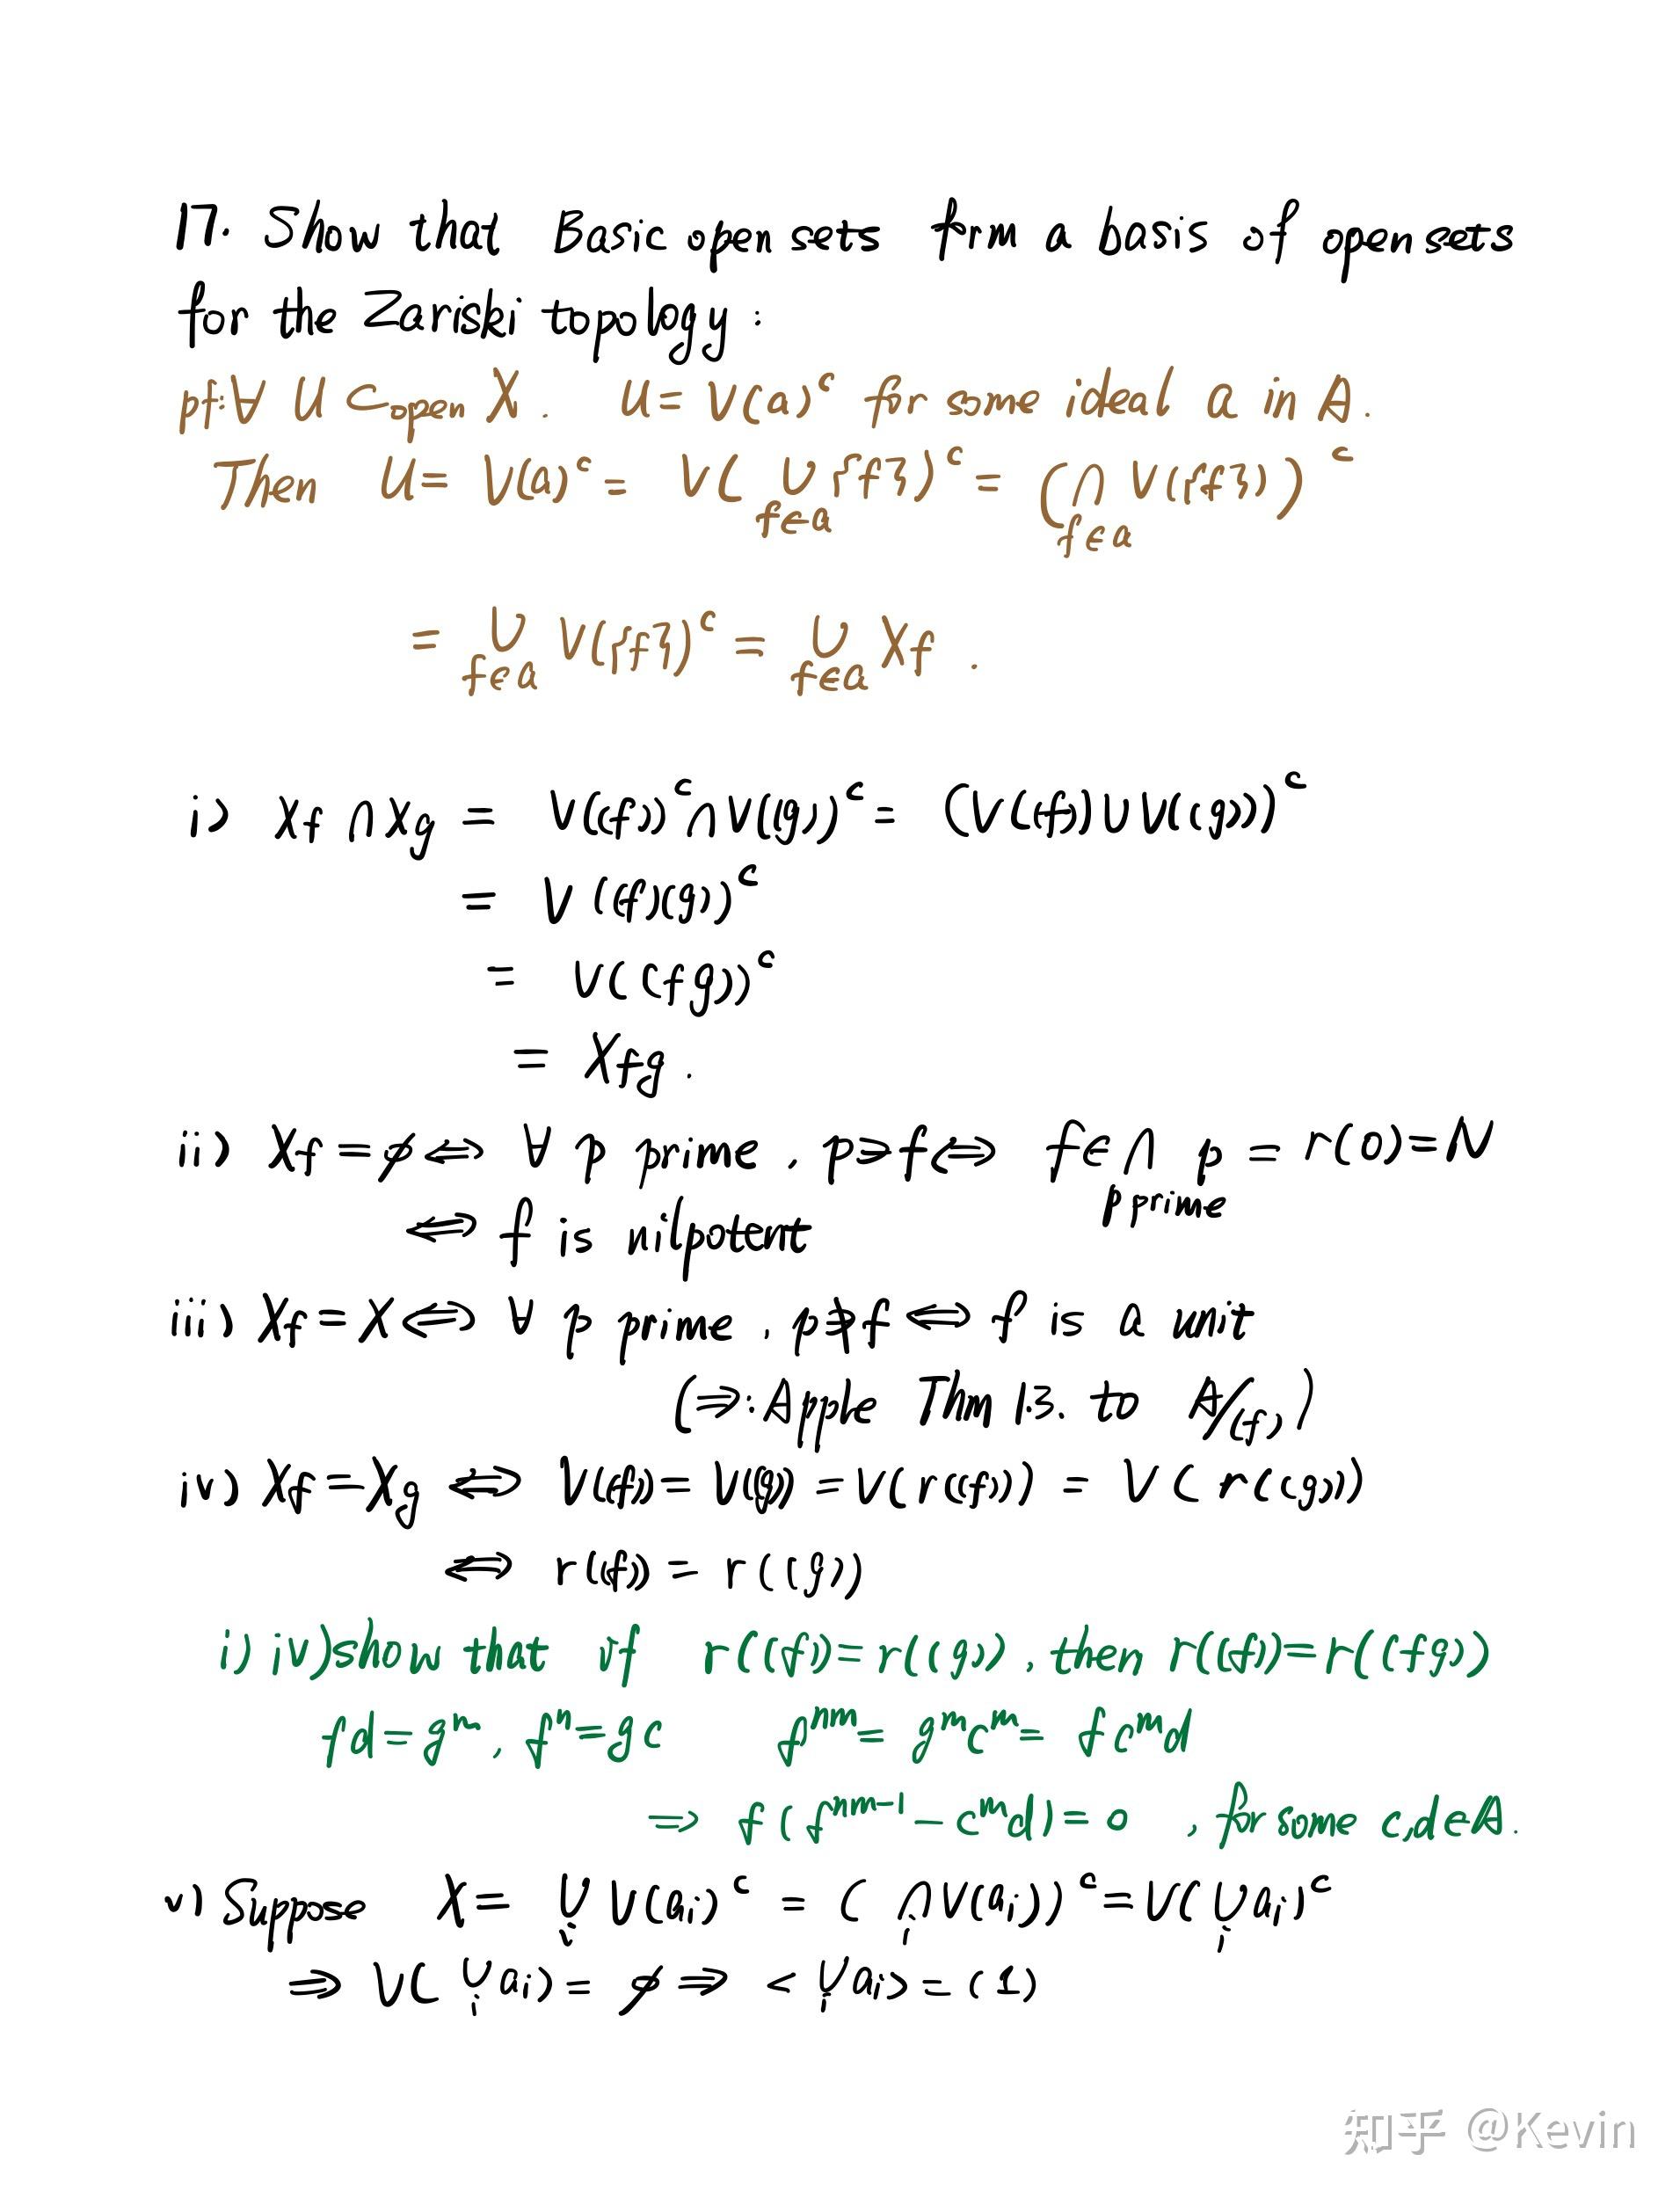 17. Show that Basic open sets form a basis of open sets
for the Zariski topology :
pf: ∀ U ⊂open X. U = V(a)ᶜ for some ideal a in A.
Then U = V(a)ᶜ = V( ∪_{f∈a} {f} )ᶜ = ( ∩_{f∈a} V({f}) )ᶜ
= ∪_{f∈a} V({f})ᶜ = ∪_{f∈a} X_f .
i) X_f ∩ X_g = V((f))ᶜ ∩ V((g))ᶜ = (V((f)) ∪ V((g)))ᶜ
= V((f)(g))ᶜ
= V((fg))ᶜ
= X_fg .
ii) X_f = ∅ ⇔ ∀ p prime, p∋f ⇔ f ∈ ∩_{p prime} p = r(0) = N
⇔ f is nilpotent
iii) X_f = X ⇔ ∀ p prime, p∌f ⇔ f is a unit
(⇒: Apple Thm 1.3. to A/(f))
iv) X_f = X_g ⇔ V((f)) = V((g)) = V(r((f))) = V(r((g)))
⇔ r((f)) = r((g))
i) iv) show that if r((f)) = r((g)), then r((f)) = r((fg))
fd = gᵐ, fⁿ = gc fⁿᵐ = gᵐcᵐ = fcᵐd
⇒ f(fⁿᵐ⁻¹ − cᵐd) = 0 , for some c,d∈A.
v) Suppose X = ∪_i V(a_i)ᶜ = ( ∩_i V(a_i))ᶜ = V(∪_i a_i)ᶜ
⇒ V( ∪_i a_i) = ∅ ⇒ < ∪_i a_i> = (1)
知乎 @Kevin